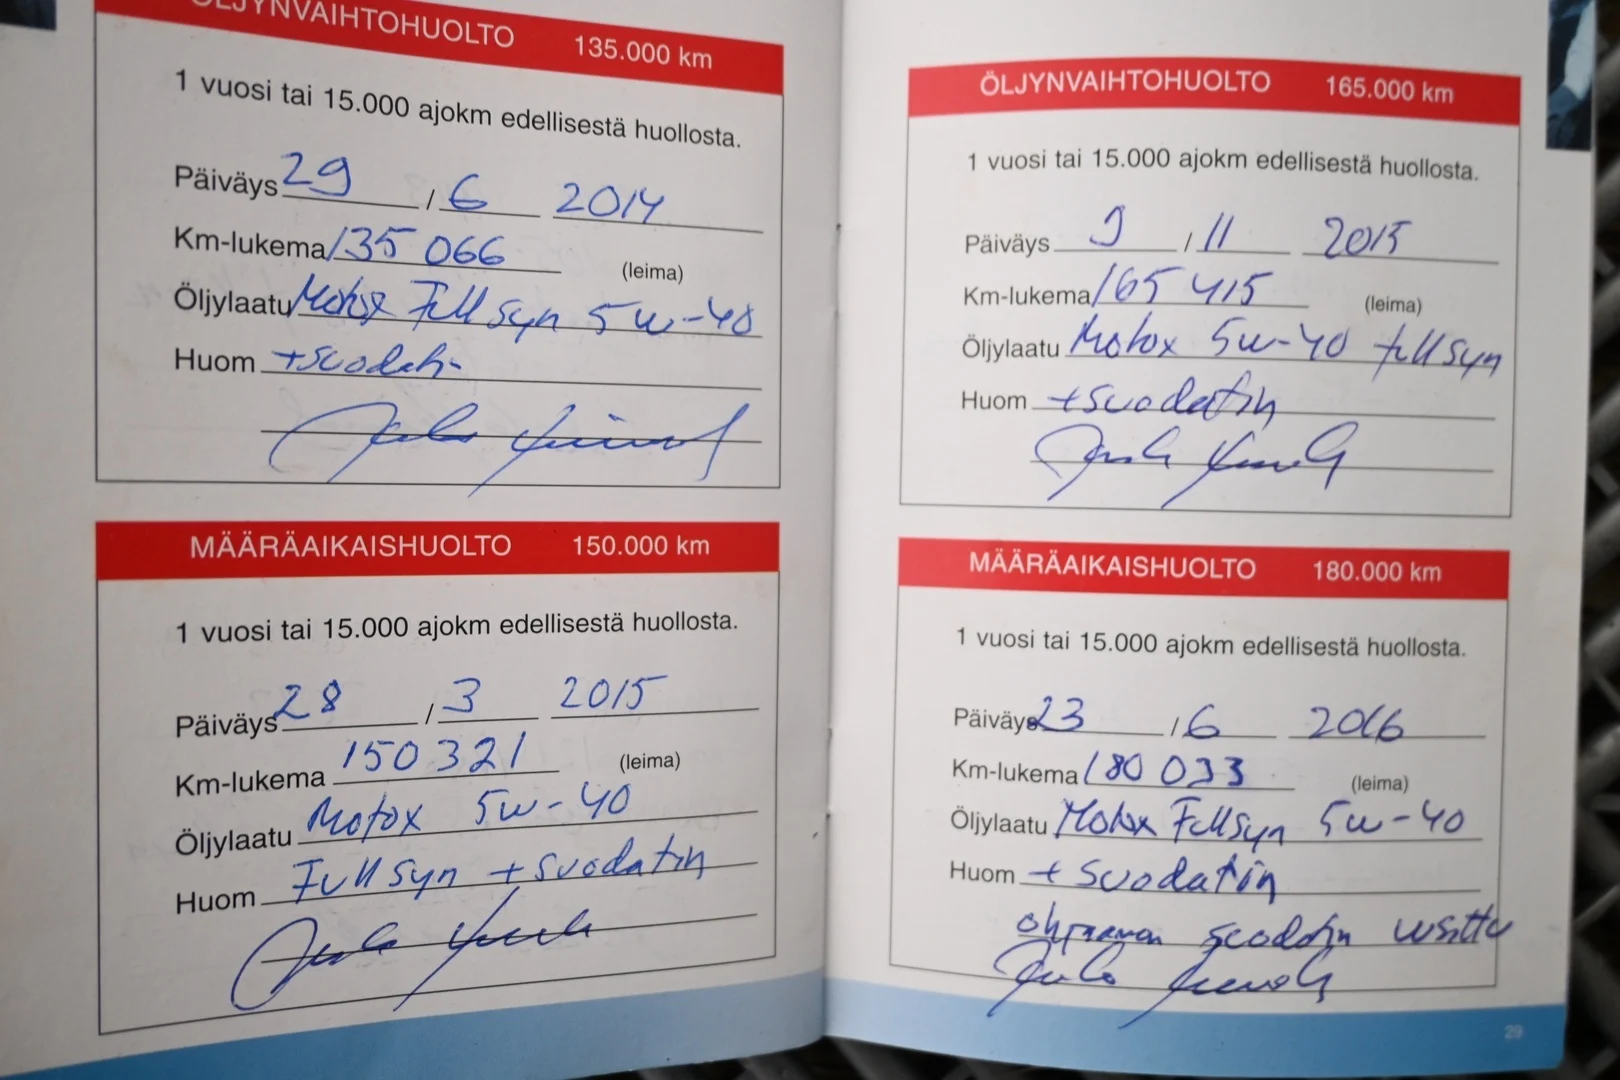 ÖLJYNVAIHTOHUOLTO 135.000 km
1 vuosi tai 15.000 ajokm edellisestä huollosta.
Päiväys 29 / 6 2014
Km-lukema 135 066 (leima)
Öljylaatu Motox Full syn 5w-40
Huom + suodatin
MÄÄRÄAIKAISHUOLTO 150.000 km
1 vuosi tai 15.000 ajokm edellisestä huollosta.
Päiväys 28 / 3 2015
Km-lukema 150 321 (leima)
Öljylaatu Motox 5w-40
Huom Full syn + suodatin
ÖLJYNVAIHTOHUOLTO 165.000 km
1 vuosi tai 15.000 ajokm edellisestä huollosta.
Päiväys 9 / 11 2015
Km-lukema 165 415 (leima)
Öljylaatu Motox 5w-40 full syn
Huom + suodatin
MÄÄRÄAIKAISHUOLTO 180.000 km
1 vuosi tai 15.000 ajokm edellisestä huollosta.
Päiväys 23 / 6 2016
Km-lukema 180 033 (leima)
Öljylaatu Motox Full syn 5w-40
Huom + suodatin
ohjaamon suodatin uusittu
29